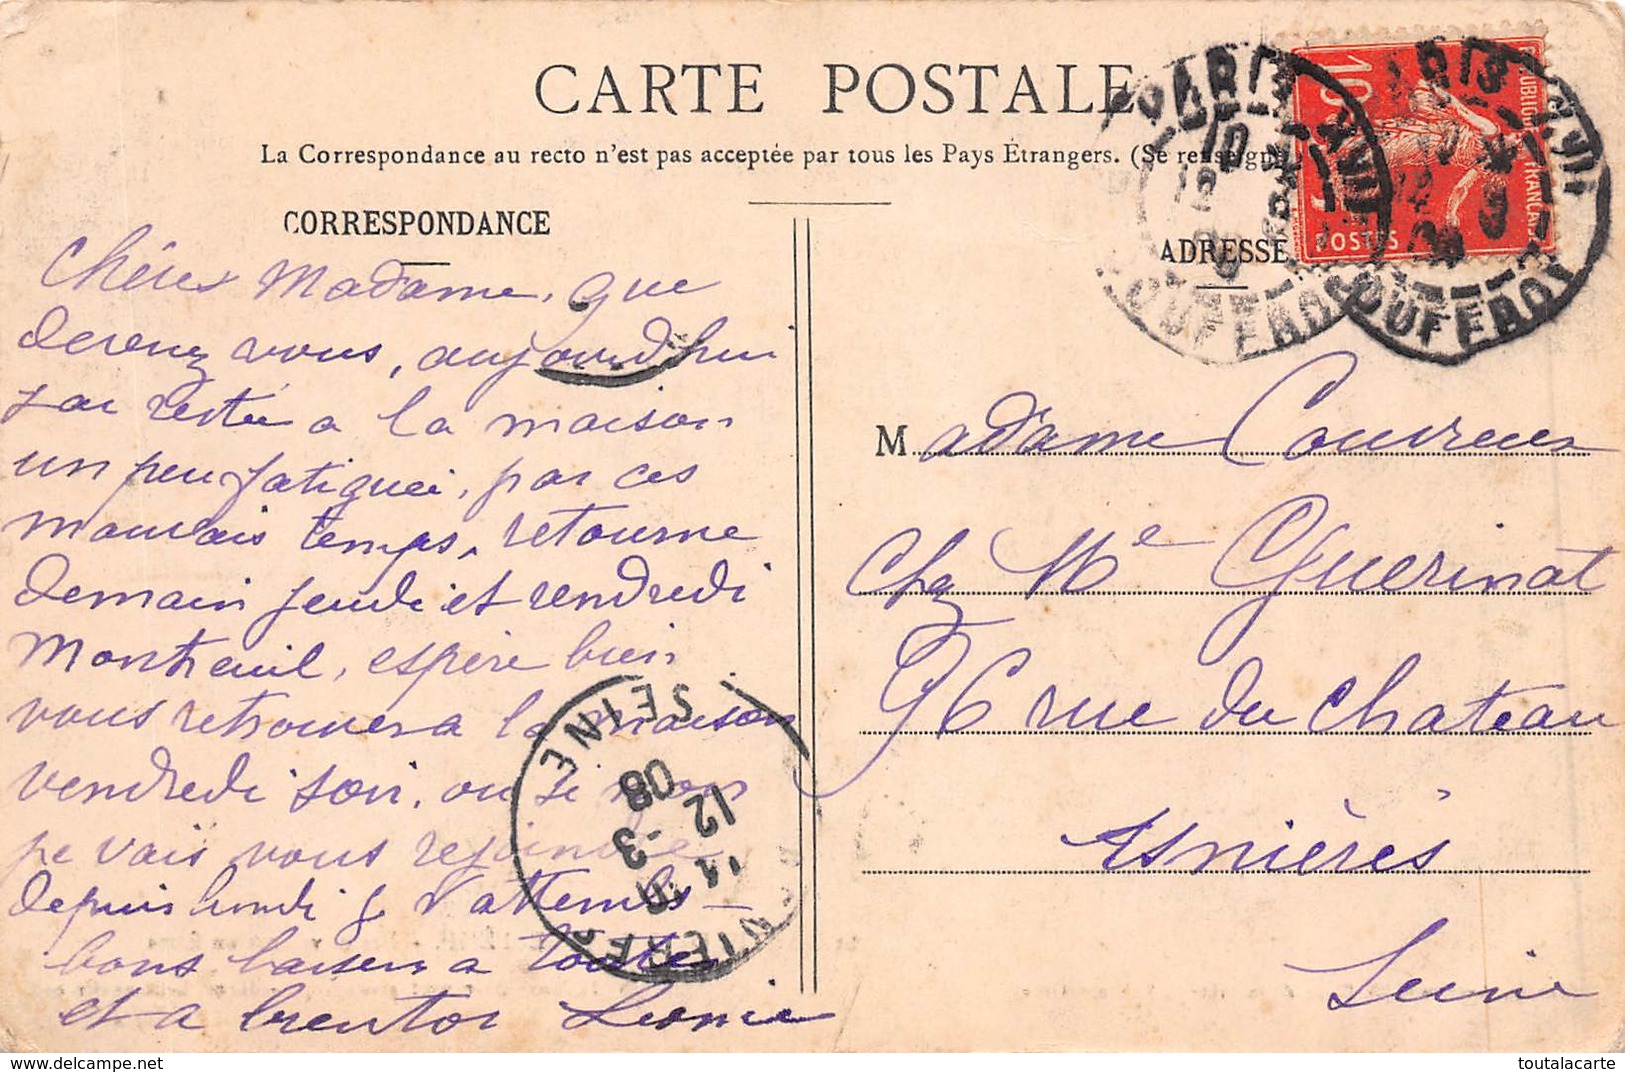 CARTE POSTALE
La Correspondance au recto n'est pas acceptée par tous les Pays Étrangers. (Se renseign
CORRESPONDANCE
Chéres Madame, que
devenez vous, aujourd'hui
J'ai restée a la maison
un peu fatiguéi, par ces
mauvais temps, retourne
demain jeudi et vendredi
Montreuil, espère bien
vous retrouver a la maison
vendredi soir, ou si non
je vais vous rejoindre
depuis lundi j t'attends
bons baisers a toutes
et a bientot Leonie
ADRESSE
Madame Couvreur
Chez Me Guerinat
96 rue du Chateau
Asnières
Seine
10
POSTES
FRANÇAISE
PARIS XVII
DUFERDY
PARIS
DUFERDY
SEINE
11 10
12 -3
08
delcampe.net
toutalacarte